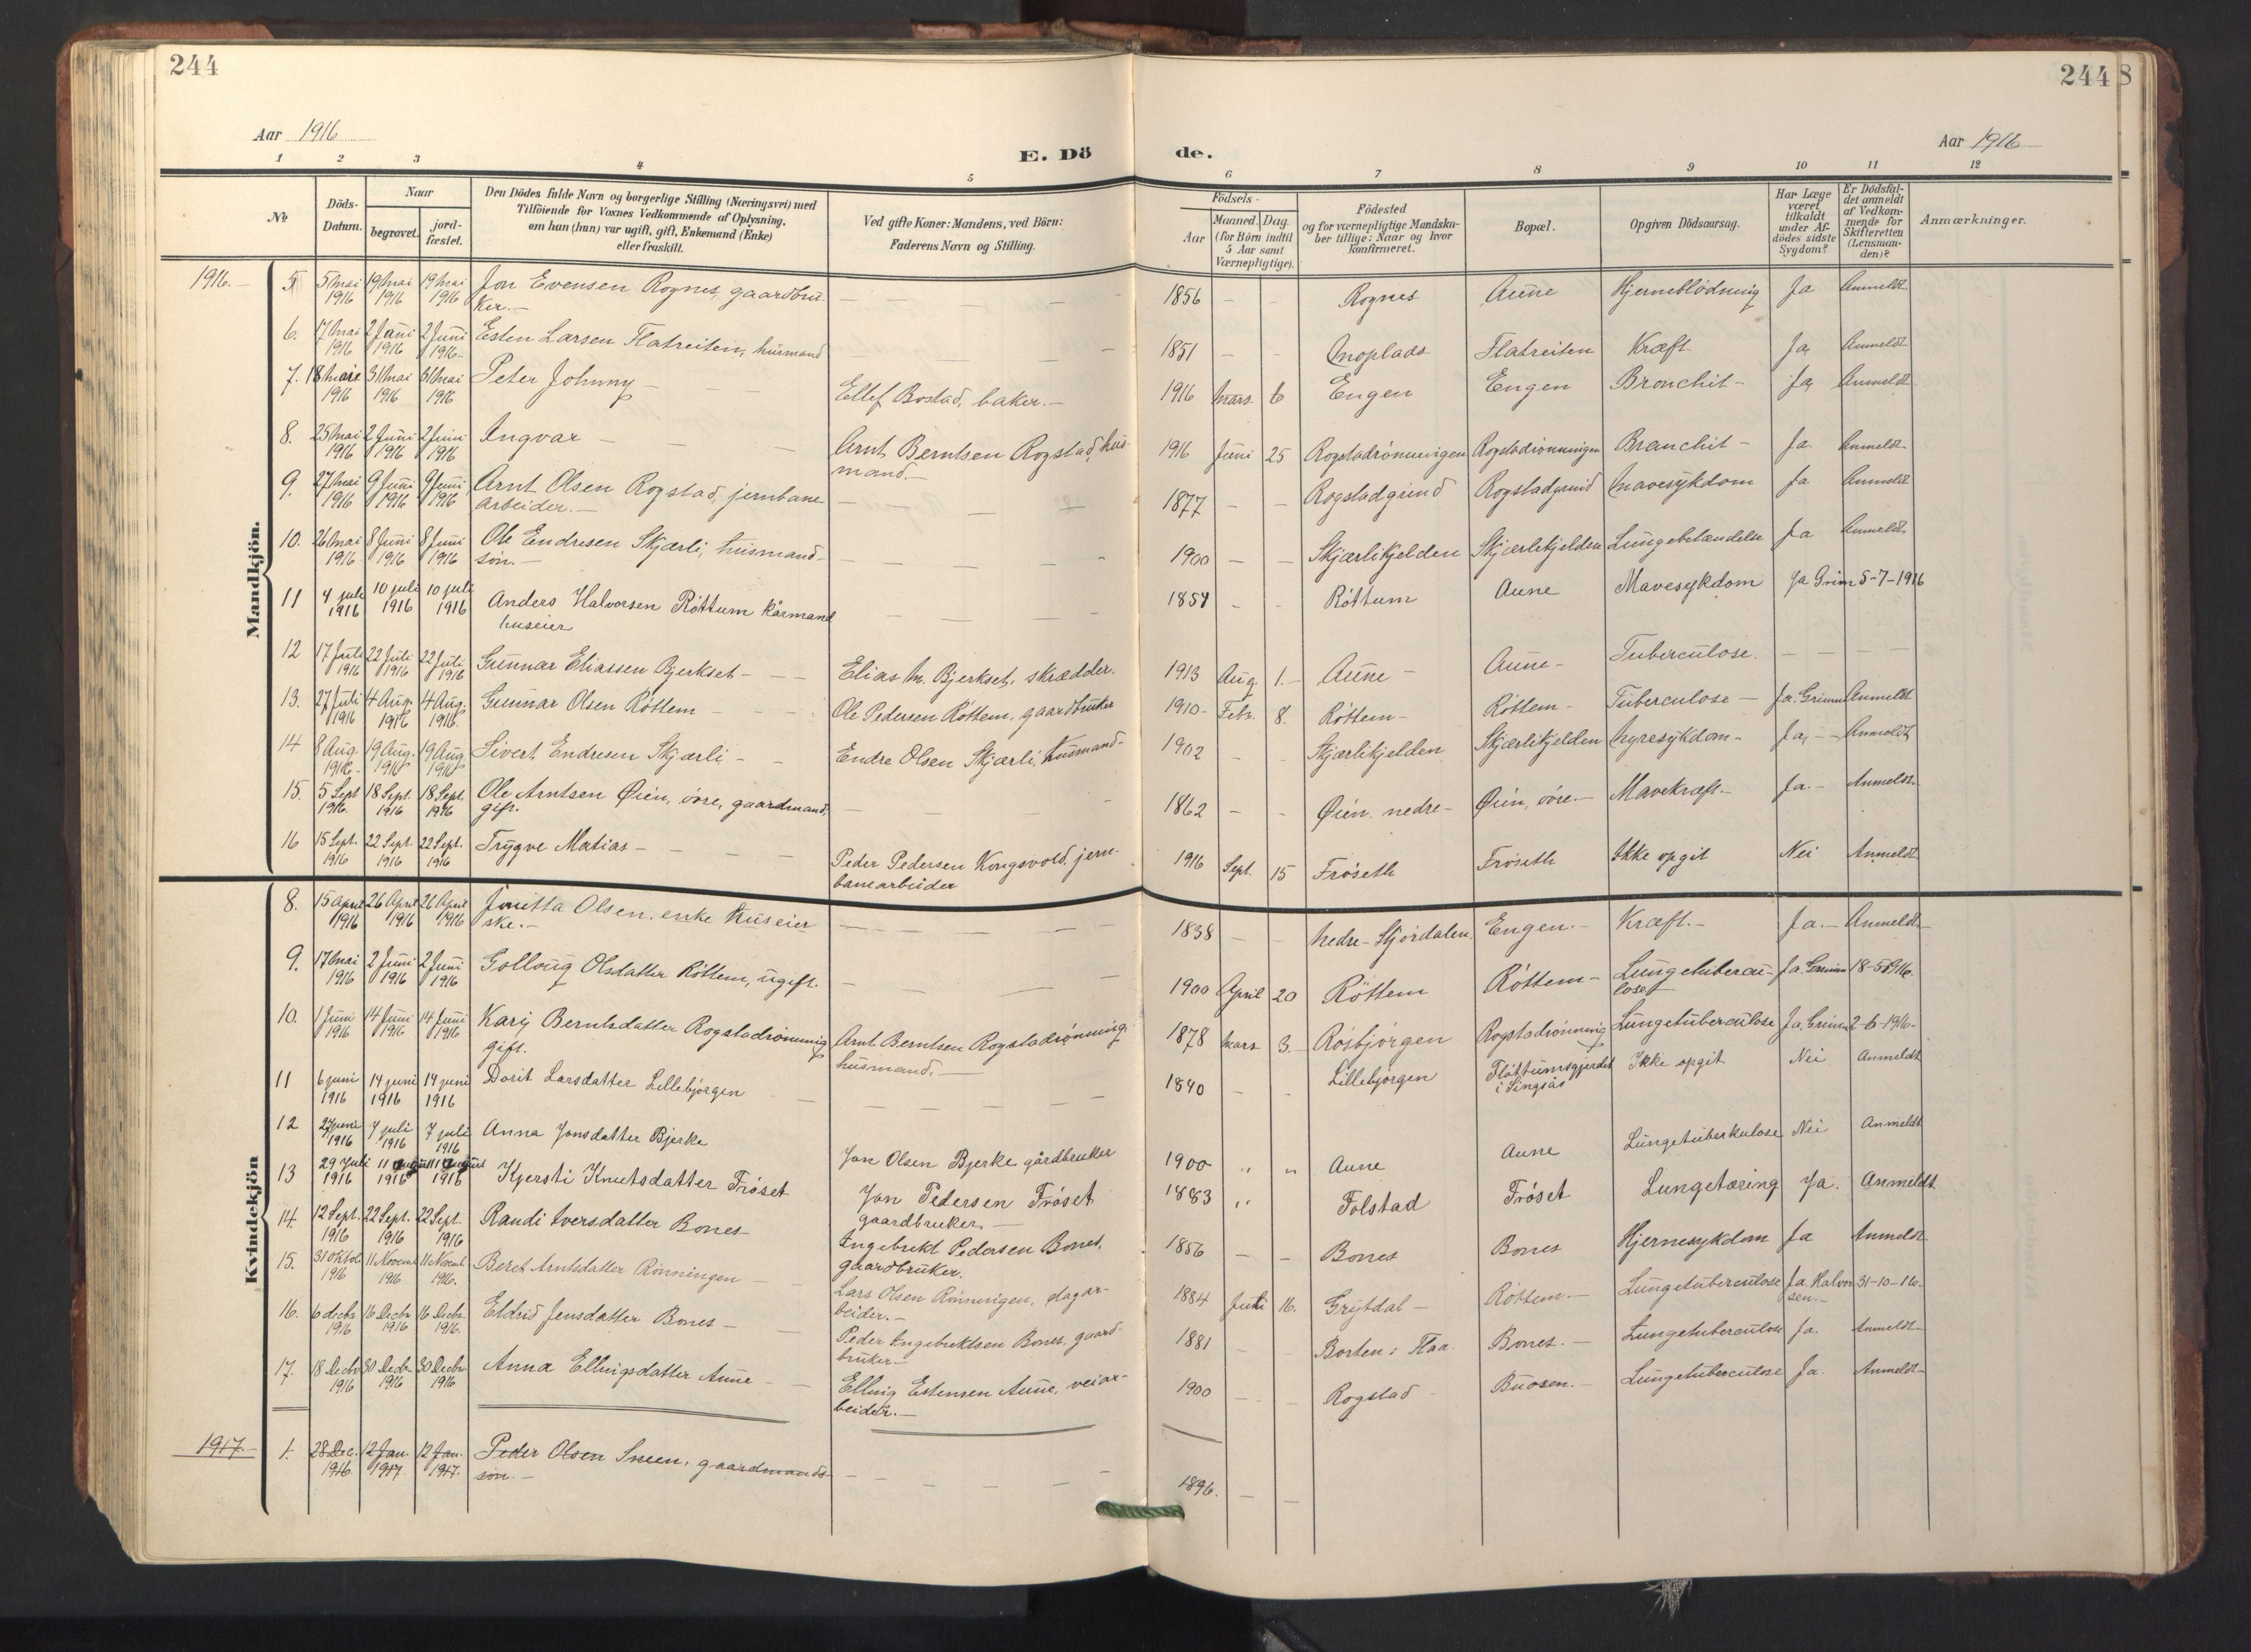 244
244
8
Aar 1916
E. Dö
de.
Aar 1916
1 2 3 4 5 6 7 8 9 10 11 12
No
Döds-
Datum.
Naar
begravet.
jord-
fæstet.
Den Dödes fulde Navn og borgerlige Stilling (Næringsvei) med
Tilföiende for Voxnes Vedkommende af Oplysning,
om han (hun) var ugift, gift, Enkemand (Enke)
eller fraskilt.
Ved gifte Koner: Mandens, ved Börn:
Faderens Navn og Stilling.
Födsels-
Aar
Maaned. Dag.
(for Börn indtil
5 Aar samt
Værnepligtige).
Födested
og for værnepligtige Mandska-
ber tillige: Naar og hvor
konfirmeret.
Bopæl.
Opgiven Dödsaarsag.
Har Læge
været
tilkaldt
under Af-
dödes sidste
Sygdom?
Er Dödsfal-
det anmeldt
af Vedkom-
mende for
Skifteretten
(Lensman-
den)?
Anmærkninger.
Mandkjön.
1916.- 5 5 Mai 19 Mai 19 Mai Jon Evensen Rognes, gaardbru- 1856 - - Rognes Aune Hjerneblödning Ja Anmeldt.
1916 1916 1916 ker.-
6. 17 Mai 2 Juni 2 Juni Esten Larsen Flatreiten, husmand 1851 - - Moplads Flatreiten Kræft Ja, Anmeldt
1916 1916 1916-
7. 18 Mai 31 Mai 31 Mai Peter Johnny - Ellef Bostad, baker.- 1916 Mars 6 Engen Engen Bronchit- Ja, Anmeldt
1916 1916 1916
8. 25 Mai 2 Juni 2 Juni Ingvar - Arnt Berntsen Rogstad, hus- 1916 Juni 25 Rogstadrönningen Rogstadrönningen Branchit- Ja. Anmeldt-
1916 1916 1916 mand.-
9. 27 Mai 9 Juni 9 Juni Arnt Olsen Rogstad, jernbane- 1877 - - Rogstadgrind Rogstadgrind Mavesykdom Ja Anmeldt
1916 1916 1916 arbeider.-
10. 26 Mai 8 Juni 8 Juni Ole Endresen Skjærli, husmand- 1900 - - Skjærlikjelden Skjærlikjelden Lungebetændelse Ja Anmeldt.
1916 1916 1916 sön.-
11 4 juli 10 juli 10 juli Anders Halvorsen Röttum kårmand 1854 - - Röttum Aune Mavesykdom Ja Grim 5-7-1916
1916 1916 1916 huseier
12 17 Juli 22 Juli 22 Juli Gunnar Eliassen Bjerkset - - - Elias M. Bjerkset, skrædder. 1913 Aug. 1.- Aune - Aune- Tuberculose. - - - -
1916 1916 1916
13. 27 Juli 4 Aug. 4 Aug. Gunnar Olsen Röttem - Ole Pedersen Röttem, gaardbruker 1910- Febr. 8. Röttem- Röttem- Tuberculose - Ja. Grimm Anmeldt
1916 1916 1916.
14 8 Aug. 19 Aug. 19 Aug. Sivert Endresen Skjærli - - Endre Olsen Skjærli, husmand- 1902 - - Skjærlikjelden Skjærlikjelden Nyresykdom- Ja, - - Anmeldt
1916- 1916 1916
15. 5 Sept 18 Sept. 18 Sept. Ole Arntsen Øien, övre, gaardmand, 1862 - - Øien, nedre- Øien, övre.- Mavekræft.- Ja.- Anmeldt.
1916. 1916 1916 gift.
16 15 Sept. 22 Sept. 22 Sept. Trygve Matias - - - - Peder Pedersen Kongsvold, jern- 1916 Sept. 15 Fröseth Fröseth Ikke opgit Nei Anmeldt
1916 1916 1916 banearbeider
Kvindekjön
8. 15 April 26 April 26 April Jonetta Olsen, enke huseier 1838 - - Nedre-Stjördalen Engen.- Kræft.- Ja.- Anmeldt-
1916 1916 1916 ske.-
9. 17 Mai 2 Juni 2 Juni Golloug Olsdatter Röttem, ugift. 1900 April 20 Röttem Röttem- Lungetubercu- Ja. Grimm 18-5-1916.
1916 1916 1916 lose
10. 1 Juni 14 Juni 14 Juni Kari Berntsdatter Rogstadrönning Arnt Berntsen Rogstadrönning, 1878 Mars 3.- Rösbjörgen Rogstadrönning Lungetuberculose Ja, Grimm 2-6-1916-
1916 1916 1916 gift. husmand.-
11 6 juni 14 juni 14 juni Dorit Larsdatter Lillebjörgen 1840 - - Lillebjörgen Flöttumsgjerdet Ikke opgit Nei Anmeldt
1916 1916 1916 i Singsås
12 27 juni 7 juli 7 juli Anna Jonsdatter Bjerke Jon Olsen Bjerke gårdbruker 1900 " " Aune Aune Lungetuberkulose Nei Anmeldt
1916 1916 1916
13 29 Juli 11 august 11 august Kjersti Knutsdatter Fröset Jon Pedersen Fröset 1883 " Folstad Fröset Lungetæring Ja. Anmeldt
1916 1916 1916 gaardbruker.-
14. 12 Sept. 22 Sept. 22 Sept. Randi Iversdatter Bones- Ingebrikt Pedersen Bones, 1856 - - Bones Bones Hjernesykdom Ja Anmeldt.
1916 1916 1916 gaardbruker.
15. 31 oktob. 11 Novemb 11 Novemb Beret Arntsdatter Rönningen - Lars Olsen Rönningen, dagar- 1884 Juli 16. Grytdal- Röttem.- Lungetuberculose Ja. Halvor 31-10-16.
1916 1916 1916. beider.- sen.-
16. 6 decbr. 16 Decbr. 16 Decbr. Eldrid Jensdatter Bones - - Peder Ingebriktsen Bones, gaard- 1881 - - Borten i Flaa. Bones.- Lungetuberculose Ja. Anmeldt-
1916 1916 1916. bruker-
17. 18 Decbr 30 Decbr. 30 Decbr. Anna Ellingsdatter Aune - - Elling Estensen Aune, veiar- 1900 - - Rogstad - Buosen.- Lungetuberculose Ja. Anmeldt-
1916 1916 1916 beider.-
1917.- 1. 28 Dec. 12 Jan. 12 Jan. Peder Olsen Sneen, gaardmands- 1896. - -
1916 1917 1917. sön.-